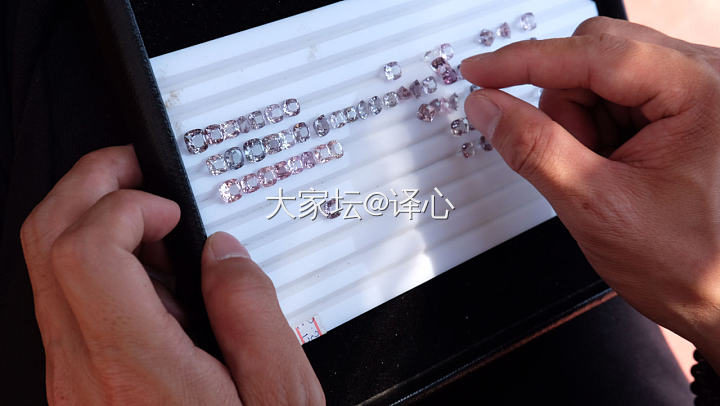 大家坛@译心